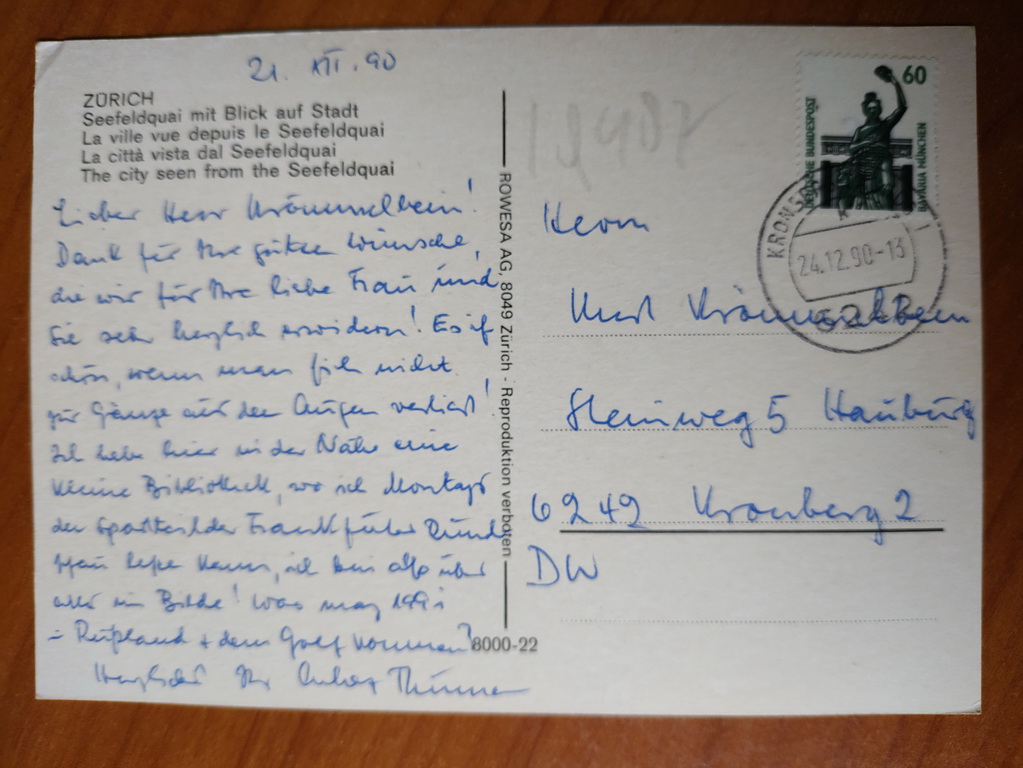 21. XII. 90
ZÜRICH
Seefeldquai mit Blick auf Stadt
La ville vue depuis le Seefeldquai
La città vista dal Seefeldquai
The city seen from the Seefeldquai
Lieber Herr Krömmelbein!
Dank für Ihre guten Wünsche,
die wir für Ihre liebe Frau und
Sie sehr herzlich erwidern! Es ist
schön, wenn man sich nicht
zur Gänze aus den Augen verliert!
Ich habe hier in der Nähe eine
kleine Bibliothek, wo ich Montags
den Sportteil der Frankfurter Rund
schau lesen kann, ich bin also über
alles im Bilde! Was mag 1991
= Rußland + dem Golf kommen?
Herzlichst Ihr
ROWESA AG, 8049 Zürich - Reproduktion verboten
8000-22
19487
60
DEUTSCHE BUNDESPOST
BAVARIA MÜNCHEN
24.12.90-13
Herrn
Kurt Krömmelbein
Steinweg 5 Hamburg
6242 Kronberg 2
DW